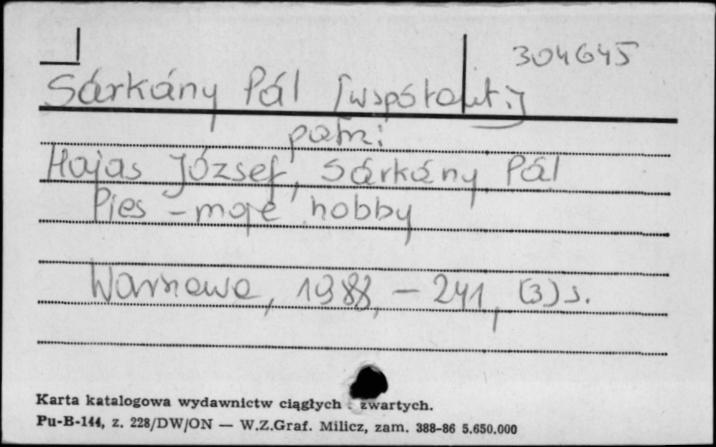 304645
Sárkány Pál [współaut.]
patrz:
Hajas József, Sárkány Pál
Pies - moje hobby
Warszawa, 1988, - 241, (3) s.
Karta katalogowa wydawnictw ciągłych i zwartych.
Pu-B-144, z. 228/DW/ON — W.Z.Graf. Milicz, zam. 388-86 5.650.000